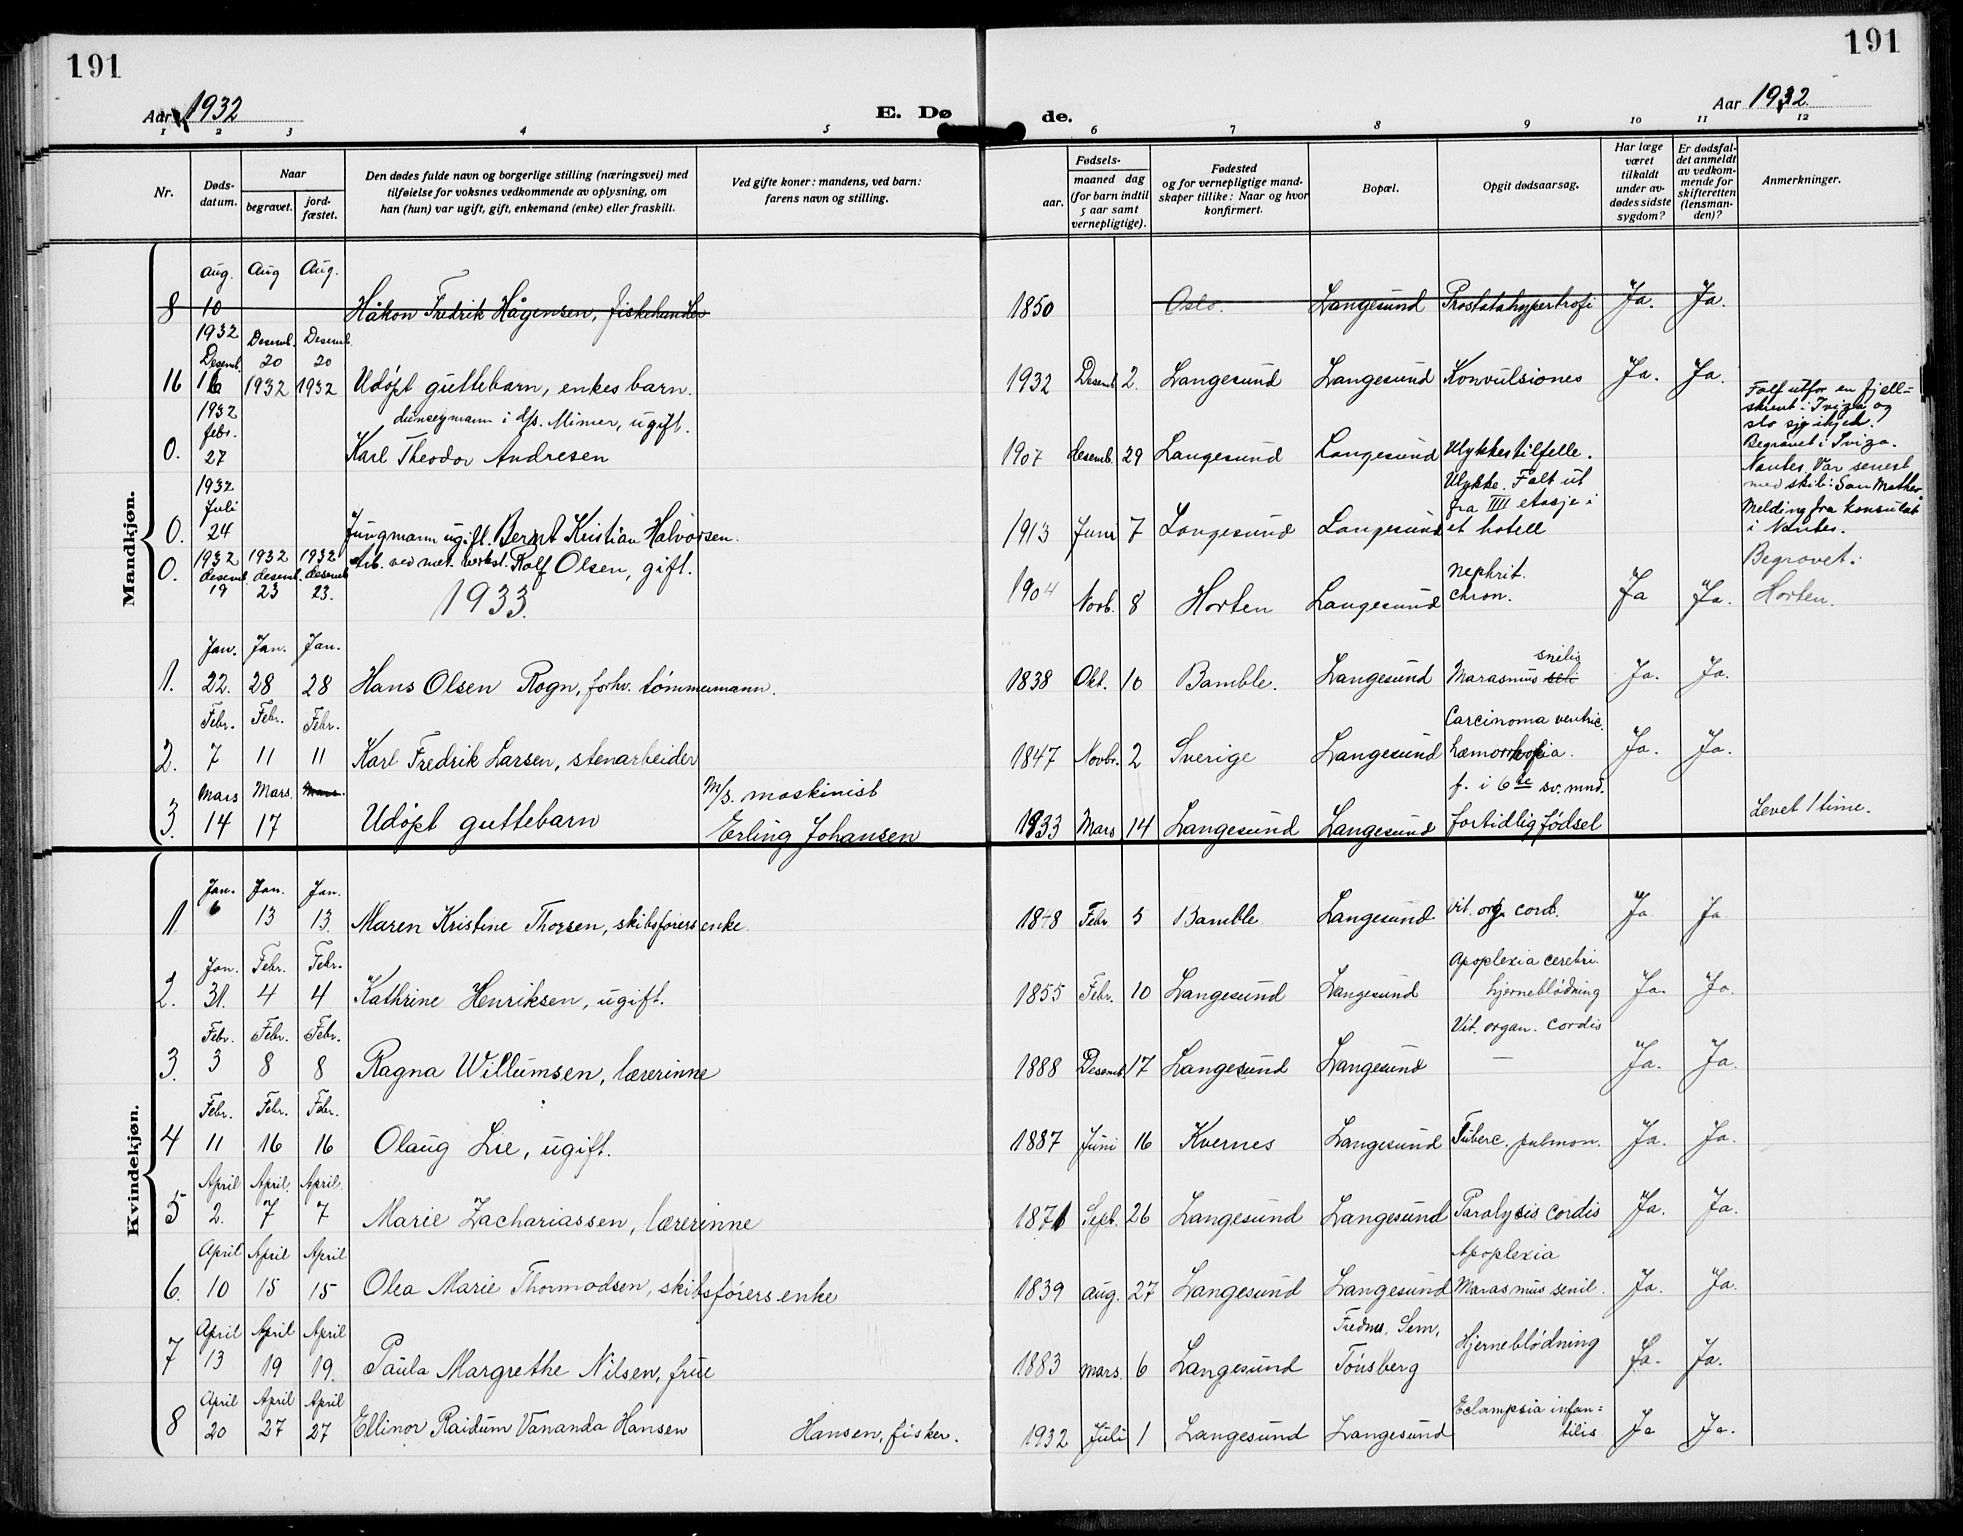 191 191
Aar 1932 E. Dø de. Aar 1932.
1 2 3 4 5 6 7 8 9 10 11 12
Nr.
Døds-
datum.
Naar
begravet.
jord-
fæstet.
Den dødes fulde navn og borgerlige stilling (næringsvei) med
tilføielse for voksnes vedkommende av oplysning, om
han (hun) var ugift, gift, enkemand (enke) eller fraskilt.
Ved gifte koner: mandens, ved barn:
farens navn og stilling.
Fødsels-
aar.
maaned dag
(for barn indtil
5 aar samt
vernepligtige).
Fødested
og for vernepligtige mand-
skaper tillike: Naar og hvor
konfirmert.
Bopæl.
Opgit dødsaarsag.
Har læge
været
tilkaldt
under av-
dødes sidste
sygdom?
Er dødsfal-
det anmeldt
av vedkom-
mende for
skifteretten
(lensman-
den)?
Anmerkninger.
Mandkjøn.
Aug. Aug Aug.
8 10 Håkon Fredrik Hågensen, fiskehandler 1850 Oslo. Langesund Prostatahypertrofi Ja. Ja.
1932 Desemb. Desemb.
Desemb. 20 20
16 16 1932 1932 Udøpt guttebarn, enkes barn. 1932 Desemb 2. Langesund Langesund Konvulsiones Ja. Ja.
1932 febr. i d/s. Mimer, ugift.
0. 27 Karl Theodor Andresen 1907 desemb. 29 Langesund Langesund Ulykkestilfelle.
Falt utfor en fjell-
skrent i Iviza og
slo sig ihjel.
Begravet i Iviza.
1932 Juli
0. 24 Jungmann ugift. Bernt Kristian Halvorsen. 1913 Juni 7 Langesund Langesund
Ulykke. Falt ut
fra III etasje i
et hotell
Nantes. Var senest
med skib:
Melding fra konsulat
i Nantes.
1932 1932 1932
0. desemb. desemb. desemb. Arb. ved mek. verkst. Rolf Olsen, gift.
19 23 23. 1904 Novb. 8 Horten Langesund nephrit. chron. Ja Ja. Begravet i Horten.
1933.
Jan. Jan. Jan.
1. 22. 28 28 Hans Olsen Rogn, forhv. tømmermann. 1838 Okt. 10 Bamble. Langesund Marasmus seli snilis Ja. Ja.
Febr. Febr. Febr.
2. 7 11 11 Karl Fredrik Larsen, stenarbeider 1847 Novbr. 2 Sverige Langesund Carcinoma ventric. Ja. Ja.
Mars Mars. Mars. M/s. maskinist f. i 6te sv. mnd.
3. 14 17 Udøpt guttebarn Erling Johansen 1933 Mars 14 Langesund Langesund fortidlig fødsel Levet 1 time.
Kvindekjøn.
Jan. Jan. Jan.
1 6 13 13. Maren Kristine Thorsen, skibsførers enke. 1848 Febr 5 Bamble Langesund vit. org. cord. Ja Ja
Jan. Febr. Febr. Apoplexia cerebri.
2. 31. 4 4 Kathrine Henriksen, ugift. 1855 Febr. 10 Langesund Langesund hjerneblødning Ja. Ja.
Febr. Febr. Febr. Vit. organ. cordis
3. 3 8 8 Ragna Willumsen, lærerinne 1888 Desemb. 17 Langesund Langesund — Ja. Ja.
Febr. Febr. Febr.
4 11 16 16 Olaug Lie, ugift. 1887 Juni 16 Kvernes Langesund Tuberc. pulmon. Ja. Ja.
April April. April.
5 2. 7 7 Marie Zachariassen, lærerinne 1871 Sept. 26 Langesund Langesund Paralysis cordis Ja. Ja.
April April April Apoplexia
6. 10 15 15 Olea Marie Thormodsen, skibsførers enke 1839 aug. 27 Langesund Langesund Marasmus senil. Ja. Ja.
April April April Sem,
7 13 19 19. Paula Margrethe Nilsen, frue 1883 mars. 6 Langesund Tønsberg Hjerneblødning Ja. Ja.
April April April Eclampsia infan=
8 20 27 27 Ellinor Raidum Vananda Hansen Hansen, fisker. 1932 Juli 1 Langesund Langesund tilis Ja Ja.